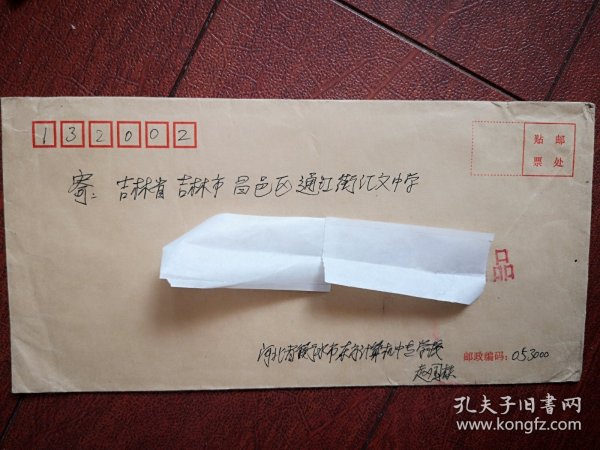 132002
贴 邮
票 处
寄: 吉林省 吉林市 昌邑区 通江街汇文中学
品
河北省衡水市东方计算机中专学校
邮政编码: 053000
孔夫子旧书网
www.kongfz.com